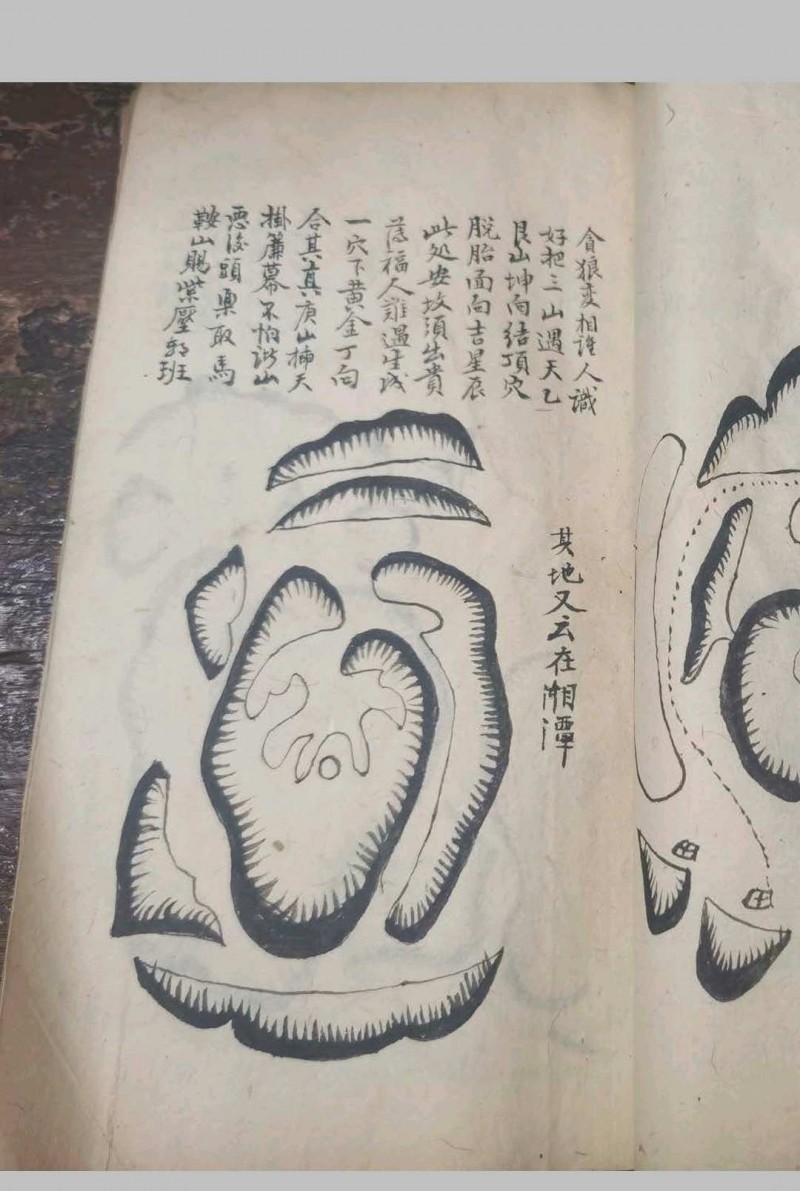 貪狼変相誰人識
好把三山遇天乙
艮山坤向结頂穴
脱胎面向吉星辰
此处安坟須出貴
福人難遇生成
一穴下黄金丁向
合其真庚山揷天
掛簾幕不怕山
悪後頭要取馬
鞍山賜紫壓班
其地又云在湘潭
田
田